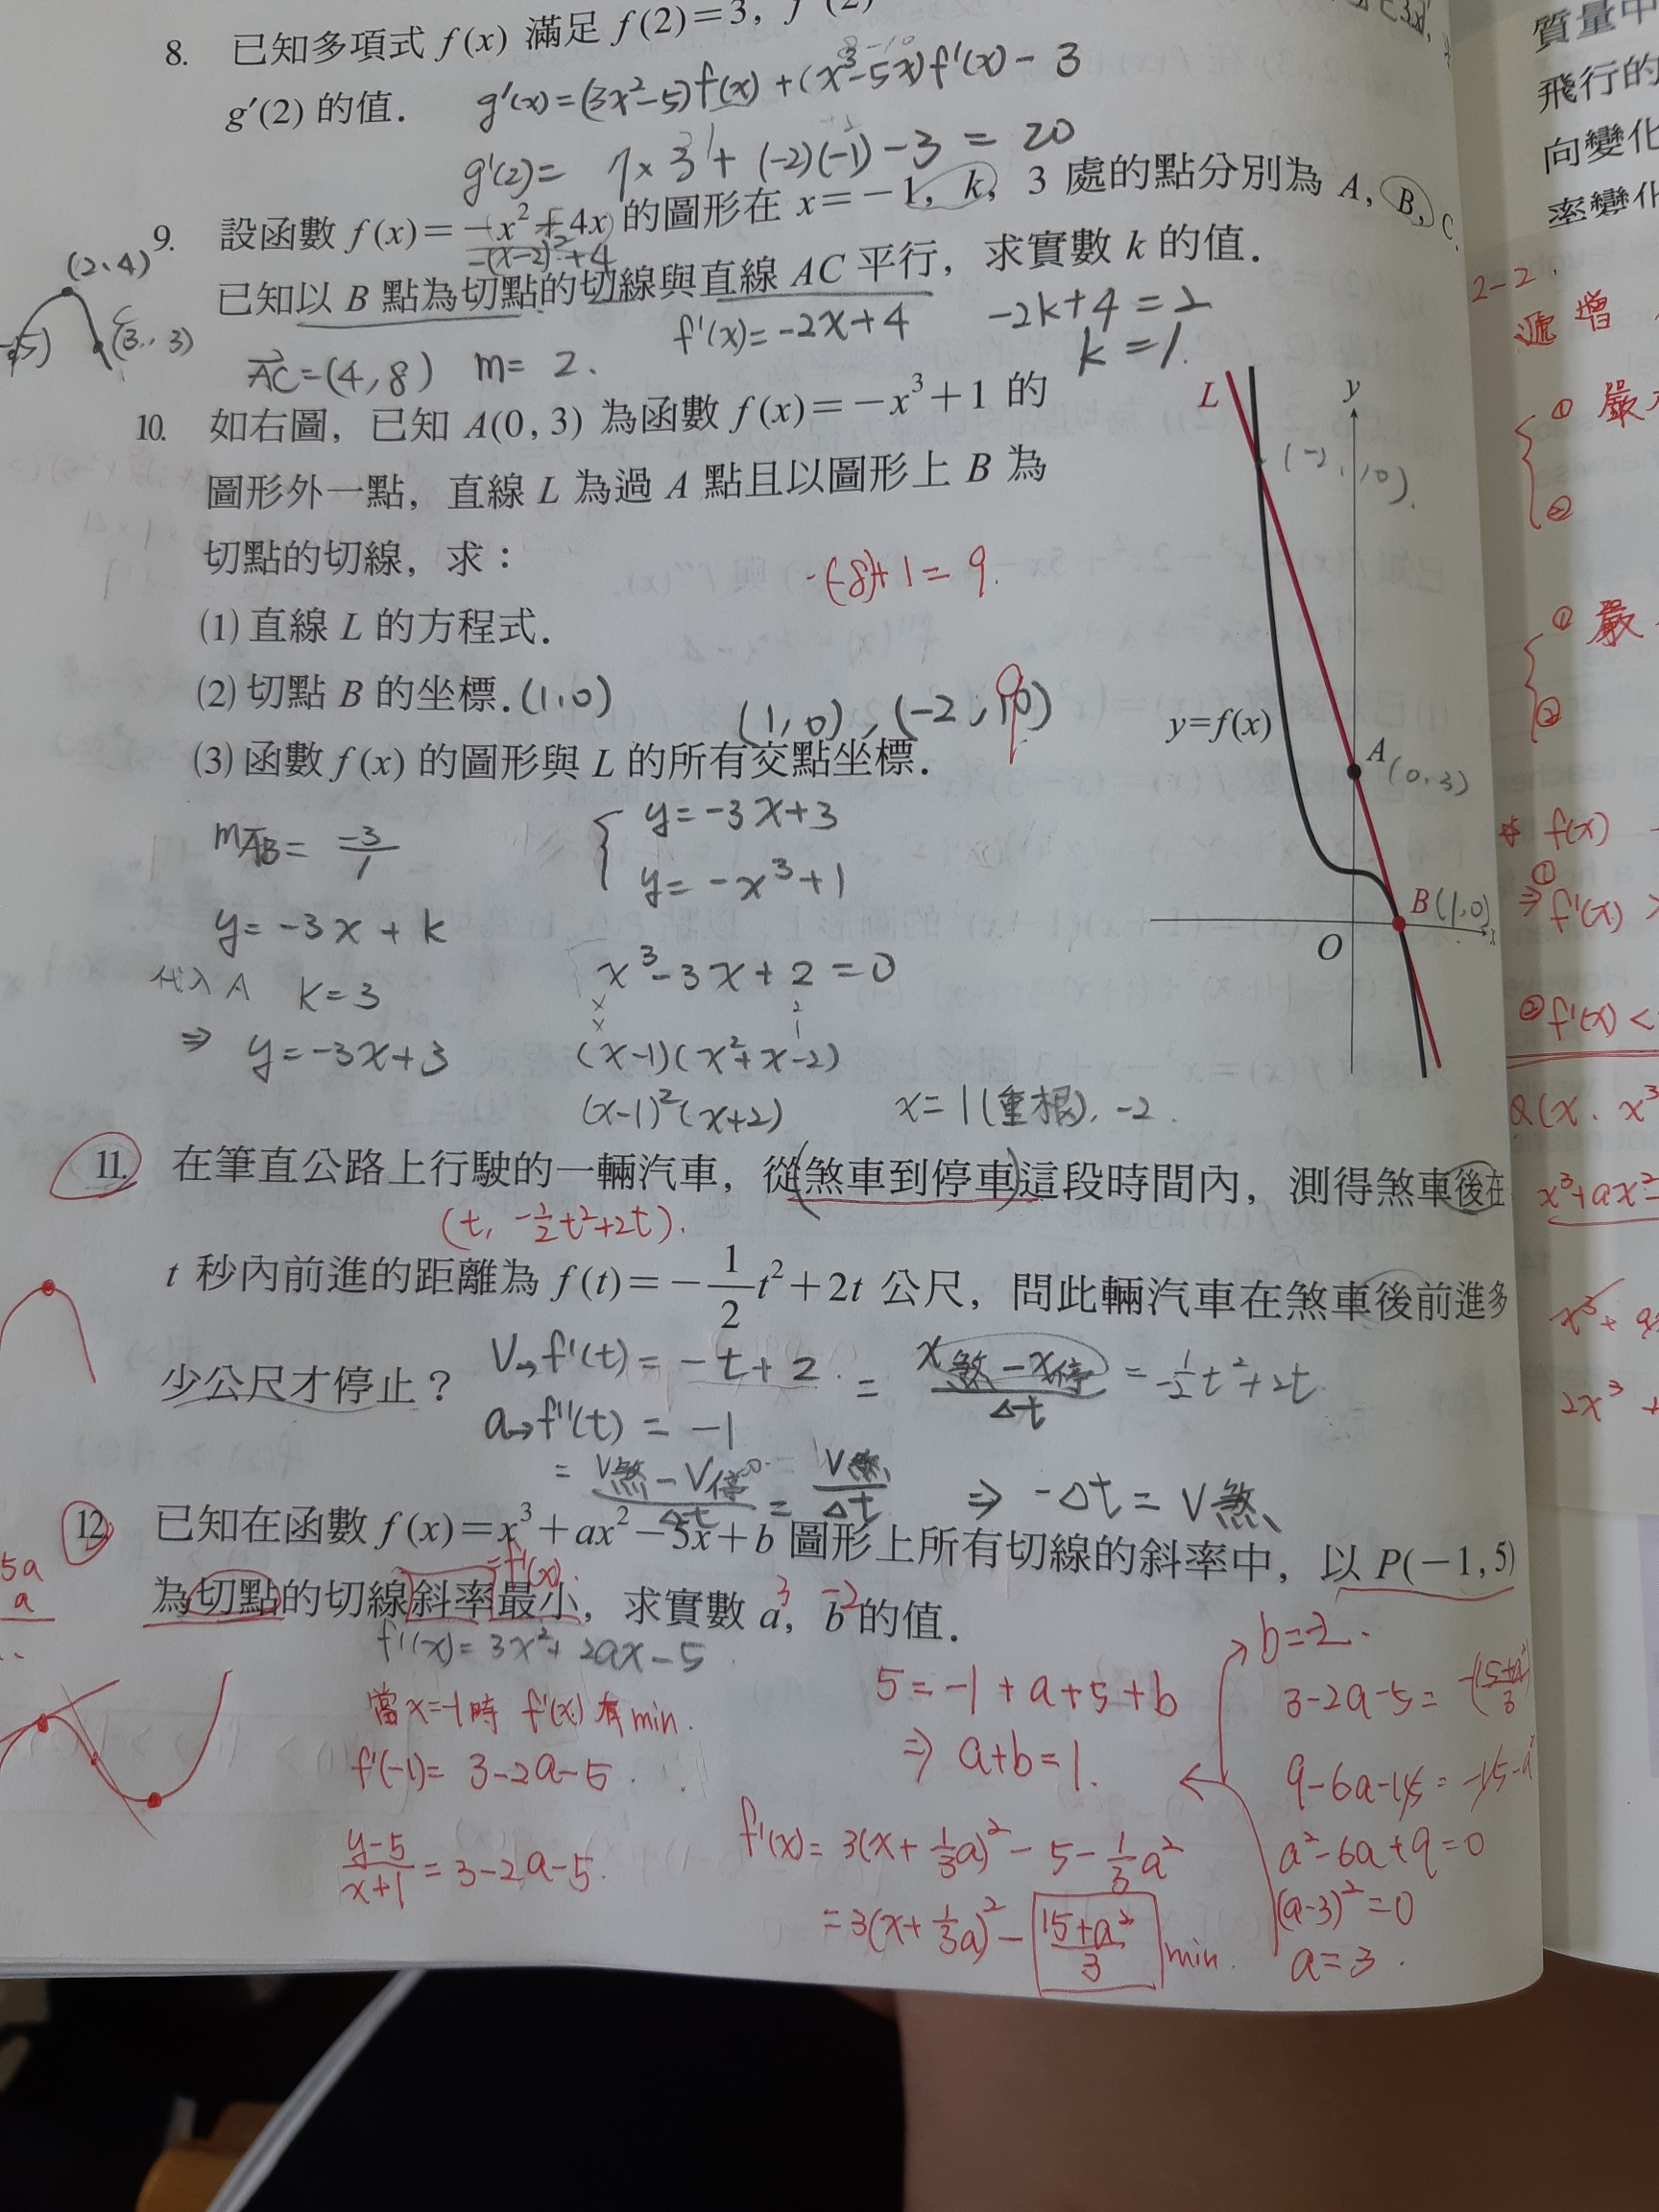 8. 已知多項式 f(x) 滿足 f(2)=3,
g'(2) 的值.
g'(x)=(3x²-5)f(x)+(x³-5x)f'(x)-3
g'(2)= 7×3+(-2)(-1)-3=20
9. 設函數 f(x)=-x²+4x 的圖形在 x=-1, k, 3 處的點分別為 A, B, C.
=-(x-2)²+4
(2,4)
已知以 B 點為切點的切線與直線 AC 平行, 求實數 k 的值.
(3,3)
f'(x)=-2x+4
-2k+4=2
k=1.
AC=(4,8) m=2.
10. 如右圖, 已知 A(0,3) 為函數 f(x)=-x³+1 的
圖形外一點, 直線 L 為過 A 點且以圖形上 B 為
切點的切線, 求:
-(-8)+1=9.
(1) 直線 L 的方程式.
(2) 切點 B 的坐標. (1,0)
(1,0), (-2, 9
(3) 函數 f(x) 的圖形與 L 的所有交點坐標.
L
y
(-2,10).
y=f(x)
A (0,3)
B (1,0)
O
x
mAB= -3/1
y=-3x+k
代入A k=3
⇒ y=-3x+3
y=-3x+3
y=-x³+1
x³-3x+2=0
(x-1)(x²+x-2)
(x-1)²(x+2) x=1(重根), -2.
11. 在筆直公路上行駛的一輛汽車, 從(煞車到停車)這段時間內, 測得煞車後在
(t, -1/2t²+2t).
t 秒內前進的距離為 f(t)=-1/2t²+2t 公尺, 問此輛汽車在煞車後前進多
少公尺才停止?
V→f'(t)=-t+2. = x煞-x停/Δt = -1/2t²+2t
a→f''(t)=-1
= V煞-V停/Δt = V煞/Δt ⇒ -Δt=V煞
12. 已知在函數 f(x)=x³+ax²-5x+b 圖形上所有切線的斜率中, 以 P(-1,5)
=f'(x).
為切點的切線斜率最小, 求實數 a, b 的值.
3 -2
f'(x)=3x²+2ax-5
當x=-1時 f'(x)有min.
f'(-1)=3-2a-5.
y-5/x+1=3-2a-5.
5=-1+a+5+b
⇒ a+b=1.
f'(x)=3(x+1/3a)²-5-1/3a²
=3(x+1/3a)²-15+a²/3 min.
b=-2.
3-2a-5=-(15+a²/3)
9-6a-15=-15-a²
a²-6a+9=0
(a-3)²=0
a=3.
5a
a
質量中
飛行的
向變化
率變化
2-2.
遞增
①嚴
②
①嚴
②
f(x)
①
⇒ f'(x) >
② f'(x) <
x³+ax²-
2x³ +